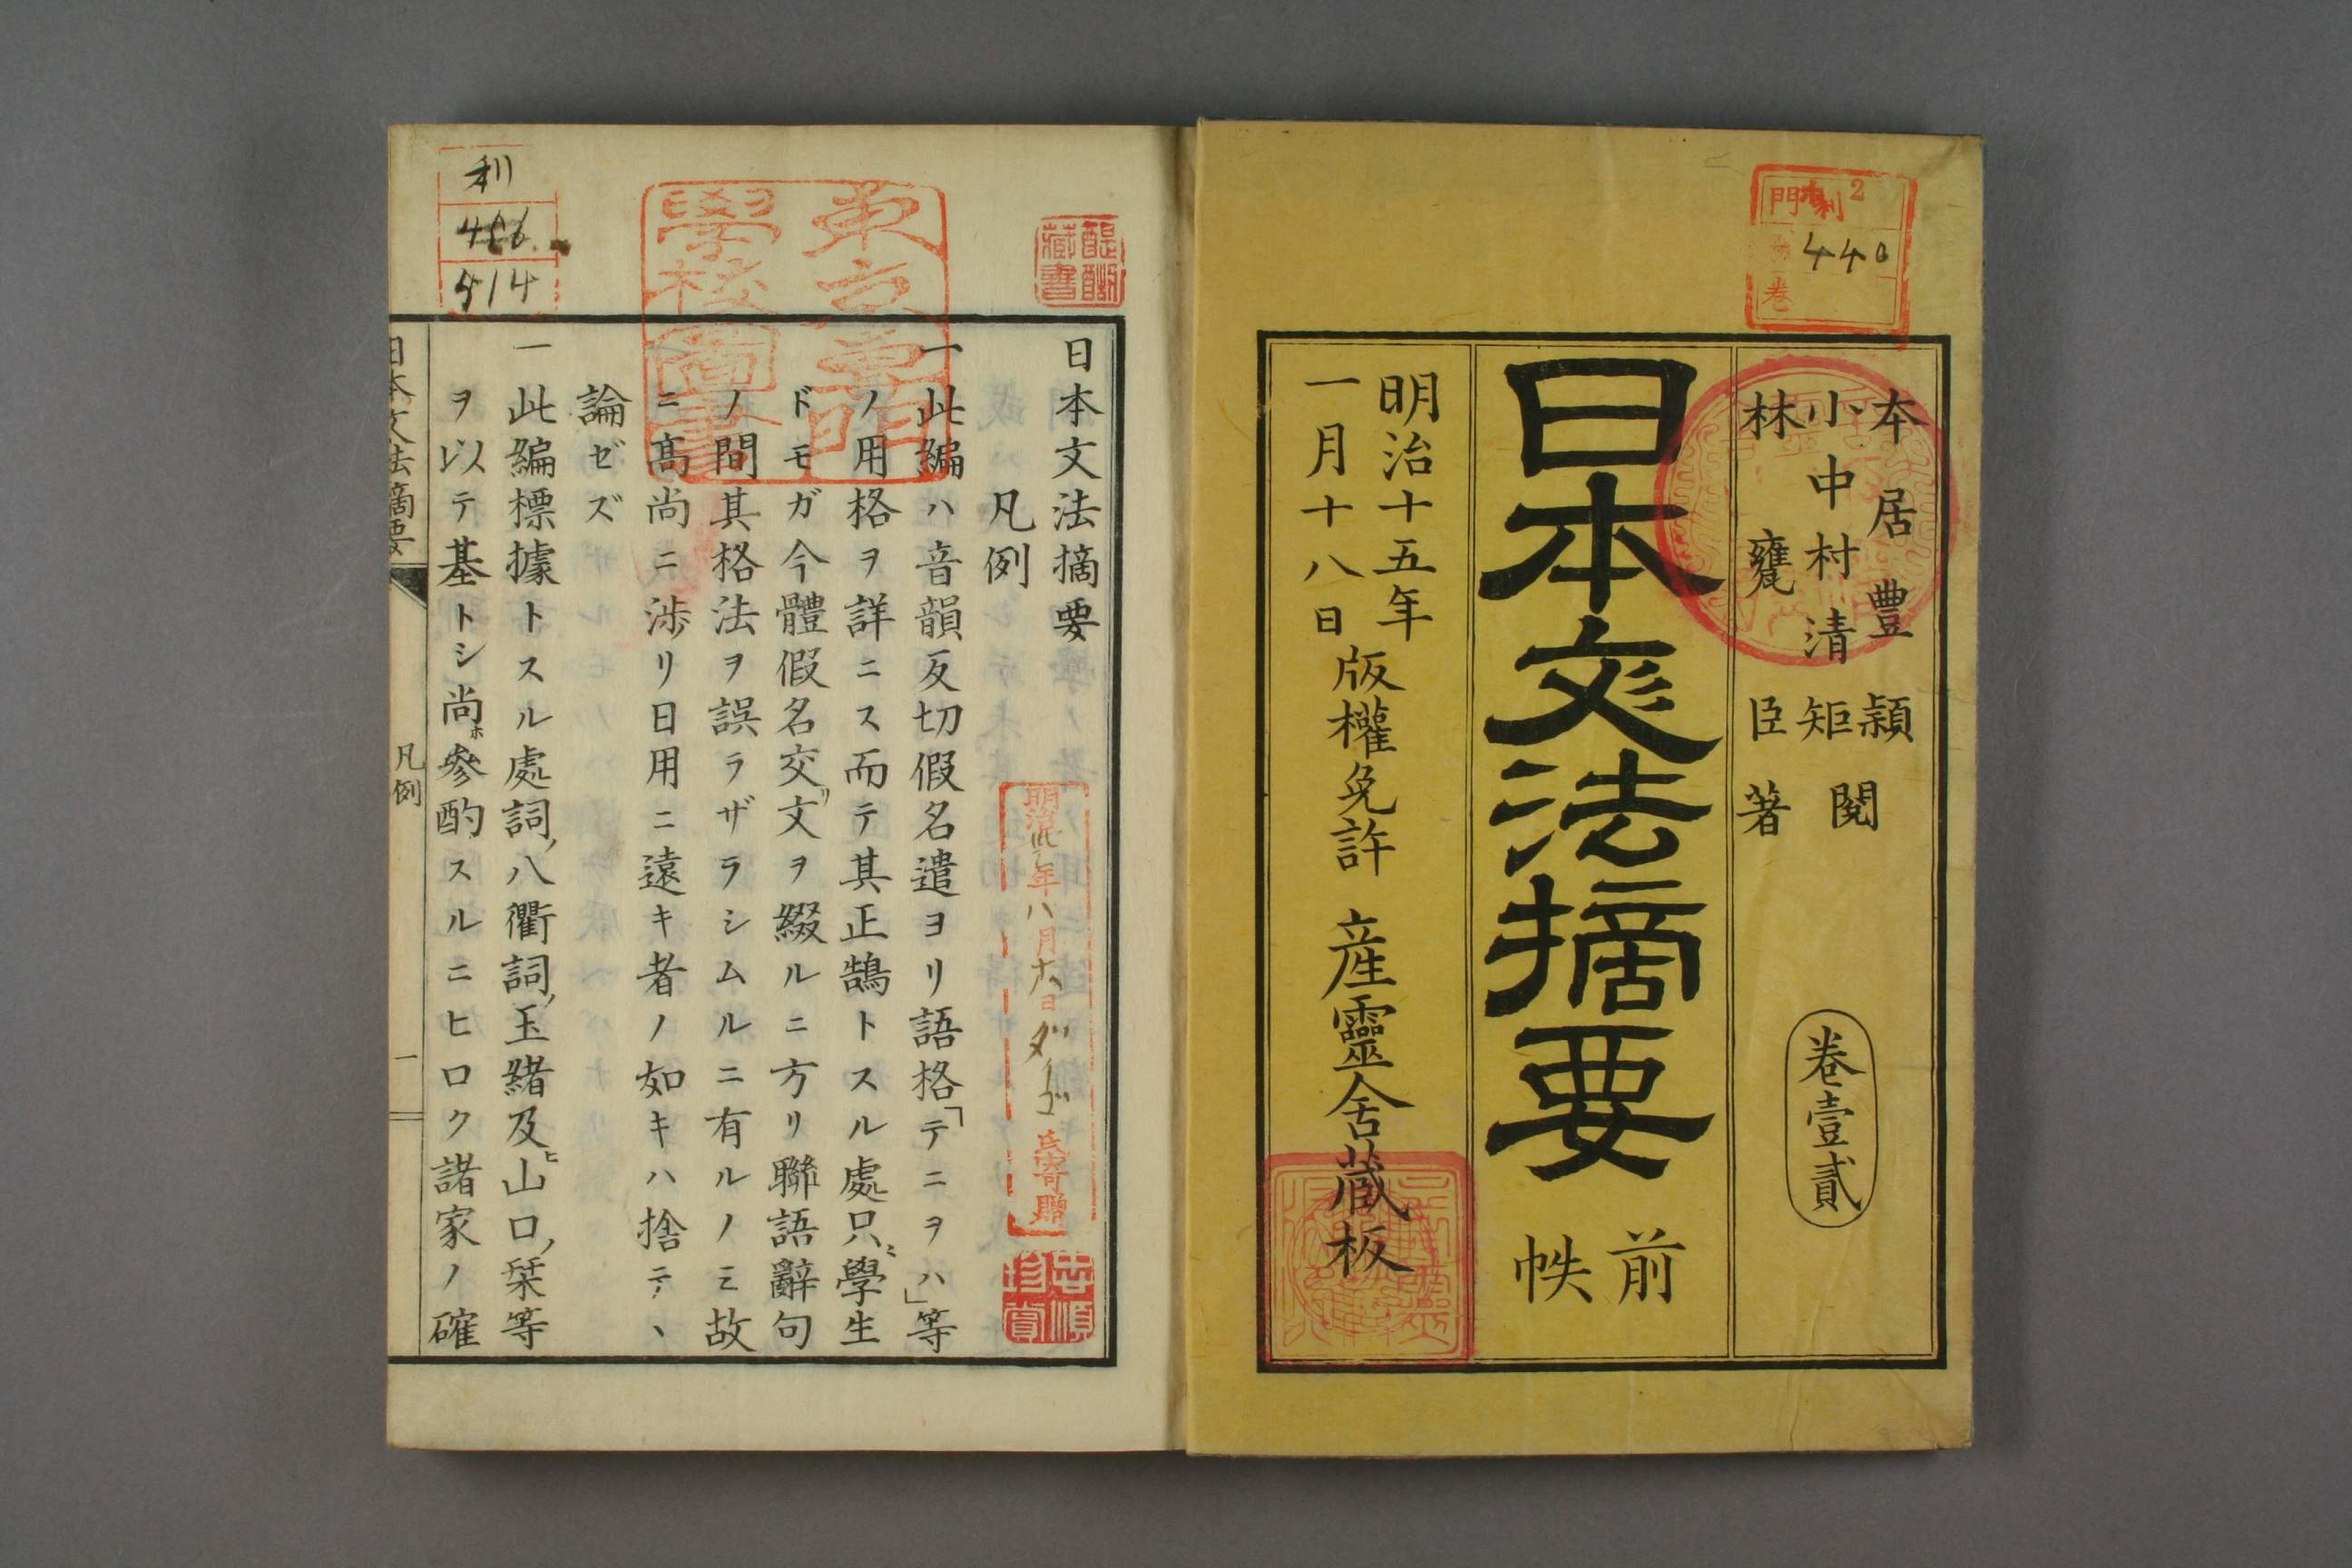 本居豊穎
小中村清矩閲
林甕臣著
卷壹貳
日本文法摘要
前
帙
明治十五年
一月十八日
版權免許
産靈舍藏板
440
日本文法摘要
凡例
一此編ハ音韻反切假名遣ヨリ語格「テニヲハ」等
ノ用格ヲ詳ニス而テ其正鵠トスル處只ニ學生
ドモガ今體假名交リ文ヲ綴ルニ方リ聯語辭句
ノ間其格法ヲ誤ラザラシムルニ有ルノミ故
ニ高尚ニ渉リ日用ニ遠キ者ノ如キハ捨テヽ
論ゼズ
一此編標據トスル處詞ノ八衢詞ノ玉緒及ヒ山口ノ栞等
ヲ以テ基トシ尚ホ參酌スルニヒロク諸家ノ確
日本文法摘要
凡例
一
利
406
414
東京專門
學校圖書
醍醐
藏書
忠順
珍賞
氏寄贈